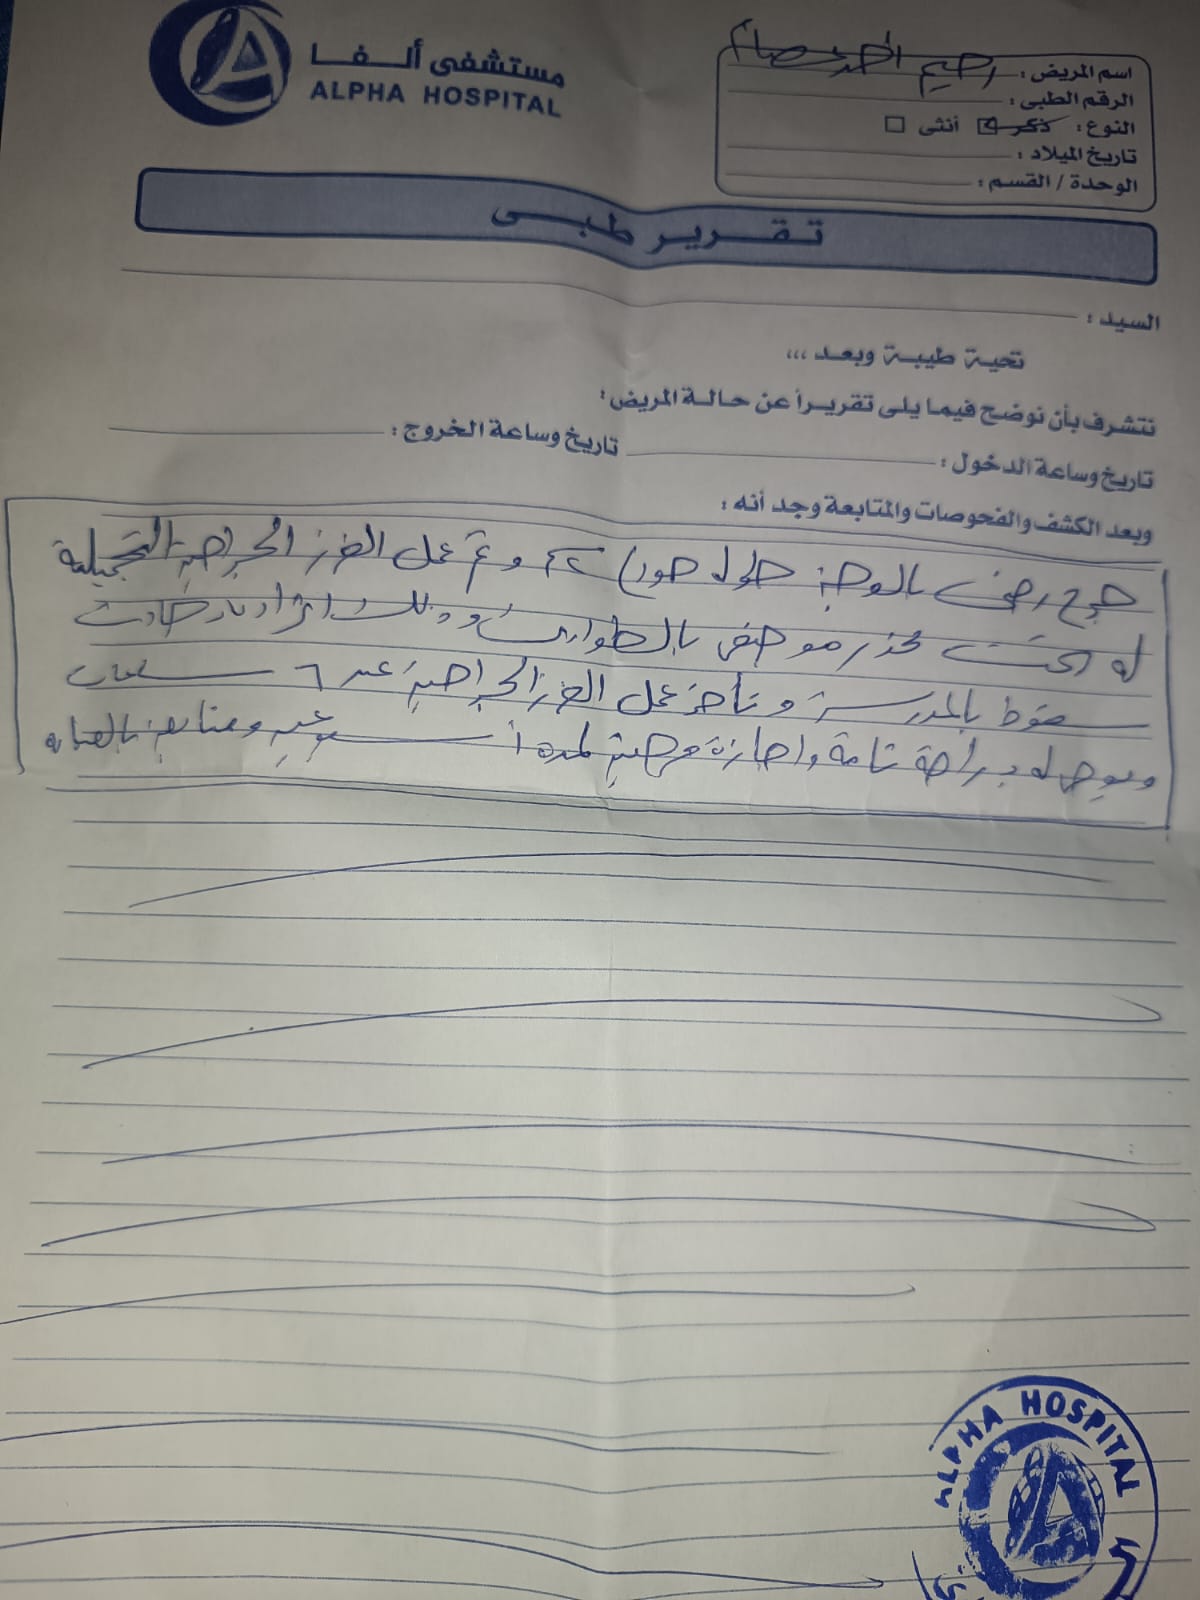 مستشفى ألفا
ALPHA HOSPITAL
اسم المريض : رحيم احمد عصام
الرقم الطبى :
النوع : ذكر أنثى
تاريخ الميلاد :
الوحدة / القسم :
تقرير طبى
السيد :
تحية طيبة وبعد ،،،
نتشرف بأن نوضح فيما يلى تقريراً عن حالة المريض :
تاريخ وساعة الدخول : تاريخ وساعة الخروج :
وبعد الكشف والفحوصات والمتابعة وجد أنه :
جرح رضى بالوجه طوله حوالى ٢ وتم عمل الغرز الجراحية التجميلية
له تحت مخدر موضعى بالطوارئ وذلك اثر ادعاء حادث
سقوط بالمدرسة وتأخر عمل الغرز الجراحية عدد ٦ ساعات
ويوصى له براحة تامة واجازة مرضية لمدة أسبوعين ومتابعة بالعيادة
ALPHA HOSPITAL